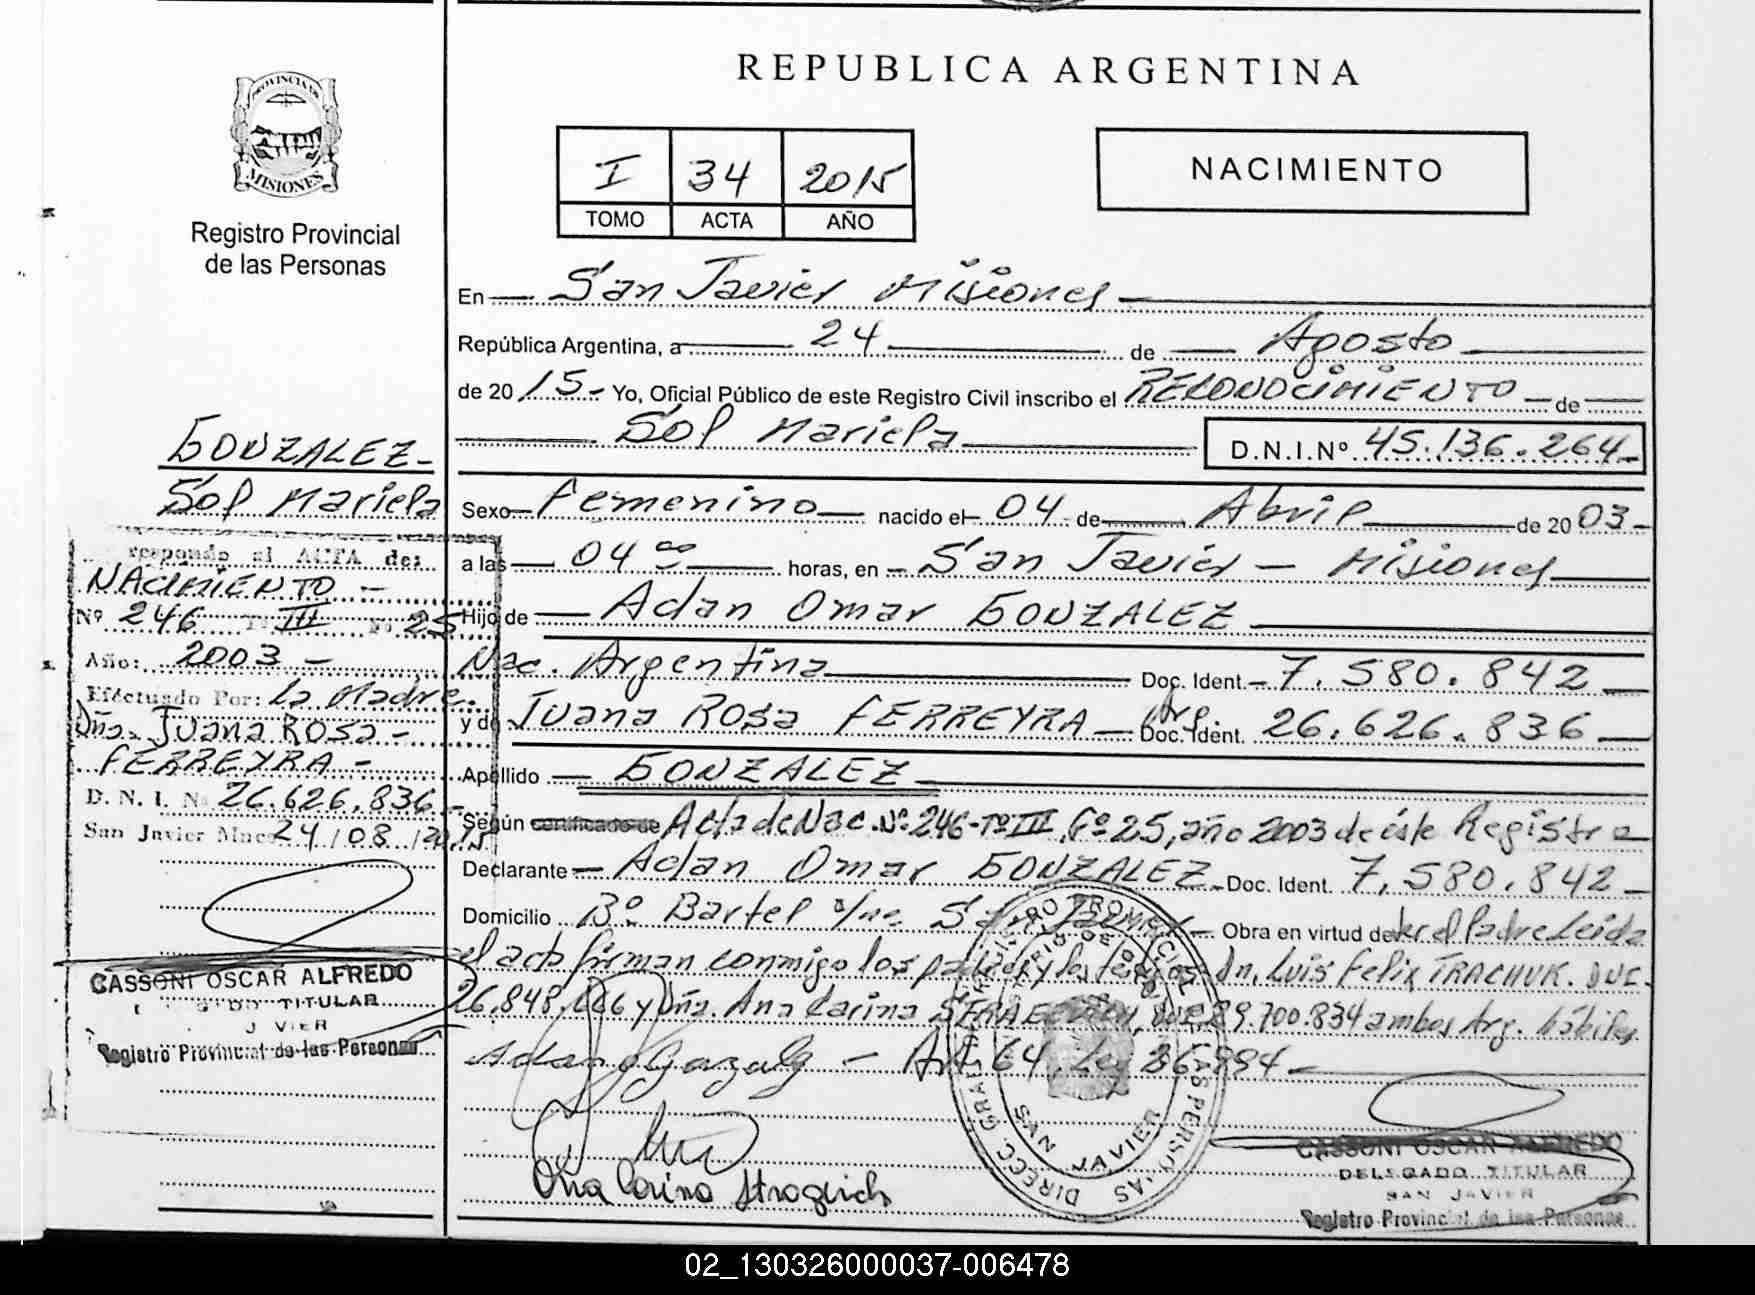 PROVINCIA DE
MISIONES
Registro Provincial
de las Personas
GONZALEZ-
Sol Mariela
responde al ACTA de:
NACIMIENTO -
Nº 246 Tº III Fº 25
Año: 2003 -
Efectuado Por: La Madre.
Dña. Juana ROSA -
FERREYRA -
D. N. I. Nº 26.626.836 -
San Javier Mnes 24/08/2015
CASSONI OSCAR ALFREDO
TITULAR
JAVIER
Registro Provincial de las Personas
REPUBLICA ARGENTINA
I 34 2015
TOMO ACTA AÑO
NACIMIENTO
En San Javier Misiones
República Argentina, a 24 de Agosto
de 20 15 - Yo, Oficial Público de este Registro Civil inscribo el RECONOCIMIENTO de
Sol Mariela D.N.I.Nº 45.136.264-
Sexo Femenino nacido el 04 de Abril de 20 03-
a las 04 00 horas, en San Javier - Misiones
Hijo de Adan Omar GONZALEZ
Nac. Argentina Doc. Ident. 7.580.842
y de Juana Rosa FERREYRA - Arg. Doc. Ident. 26.626.836
Apellido GONZALEZ
Según certificado de Acta de Nac. Nº 246-Tº III, Fº 25, año 2003 de éste Registro
Declarante Adan Omar GONZALEZ Doc. Ident. 7.580.842
Domicilio Bº Bartel s/nº San Javier Obra en virtud de ser el Padre Leida
el acto firman conmigo los padres y los testigos Dn. Luis Felix TRACHUK. DNI.
26.848.666 y Dña. Ana Carina DNI 29.700.834 ambos Arg. hábiles
Adan Gonzalez - Art. 64, Ley 26.994
Ana Carina
DIRECC. GRAL. REGISTRO PROVINCIAL DE LAS PERSONAS
SAN JAVIER
CASSONI OSCAR ALFREDO
DELEGADO TITULAR
SAN JAVIER
Registro Provincial de las Personas
02_130326000037-006478